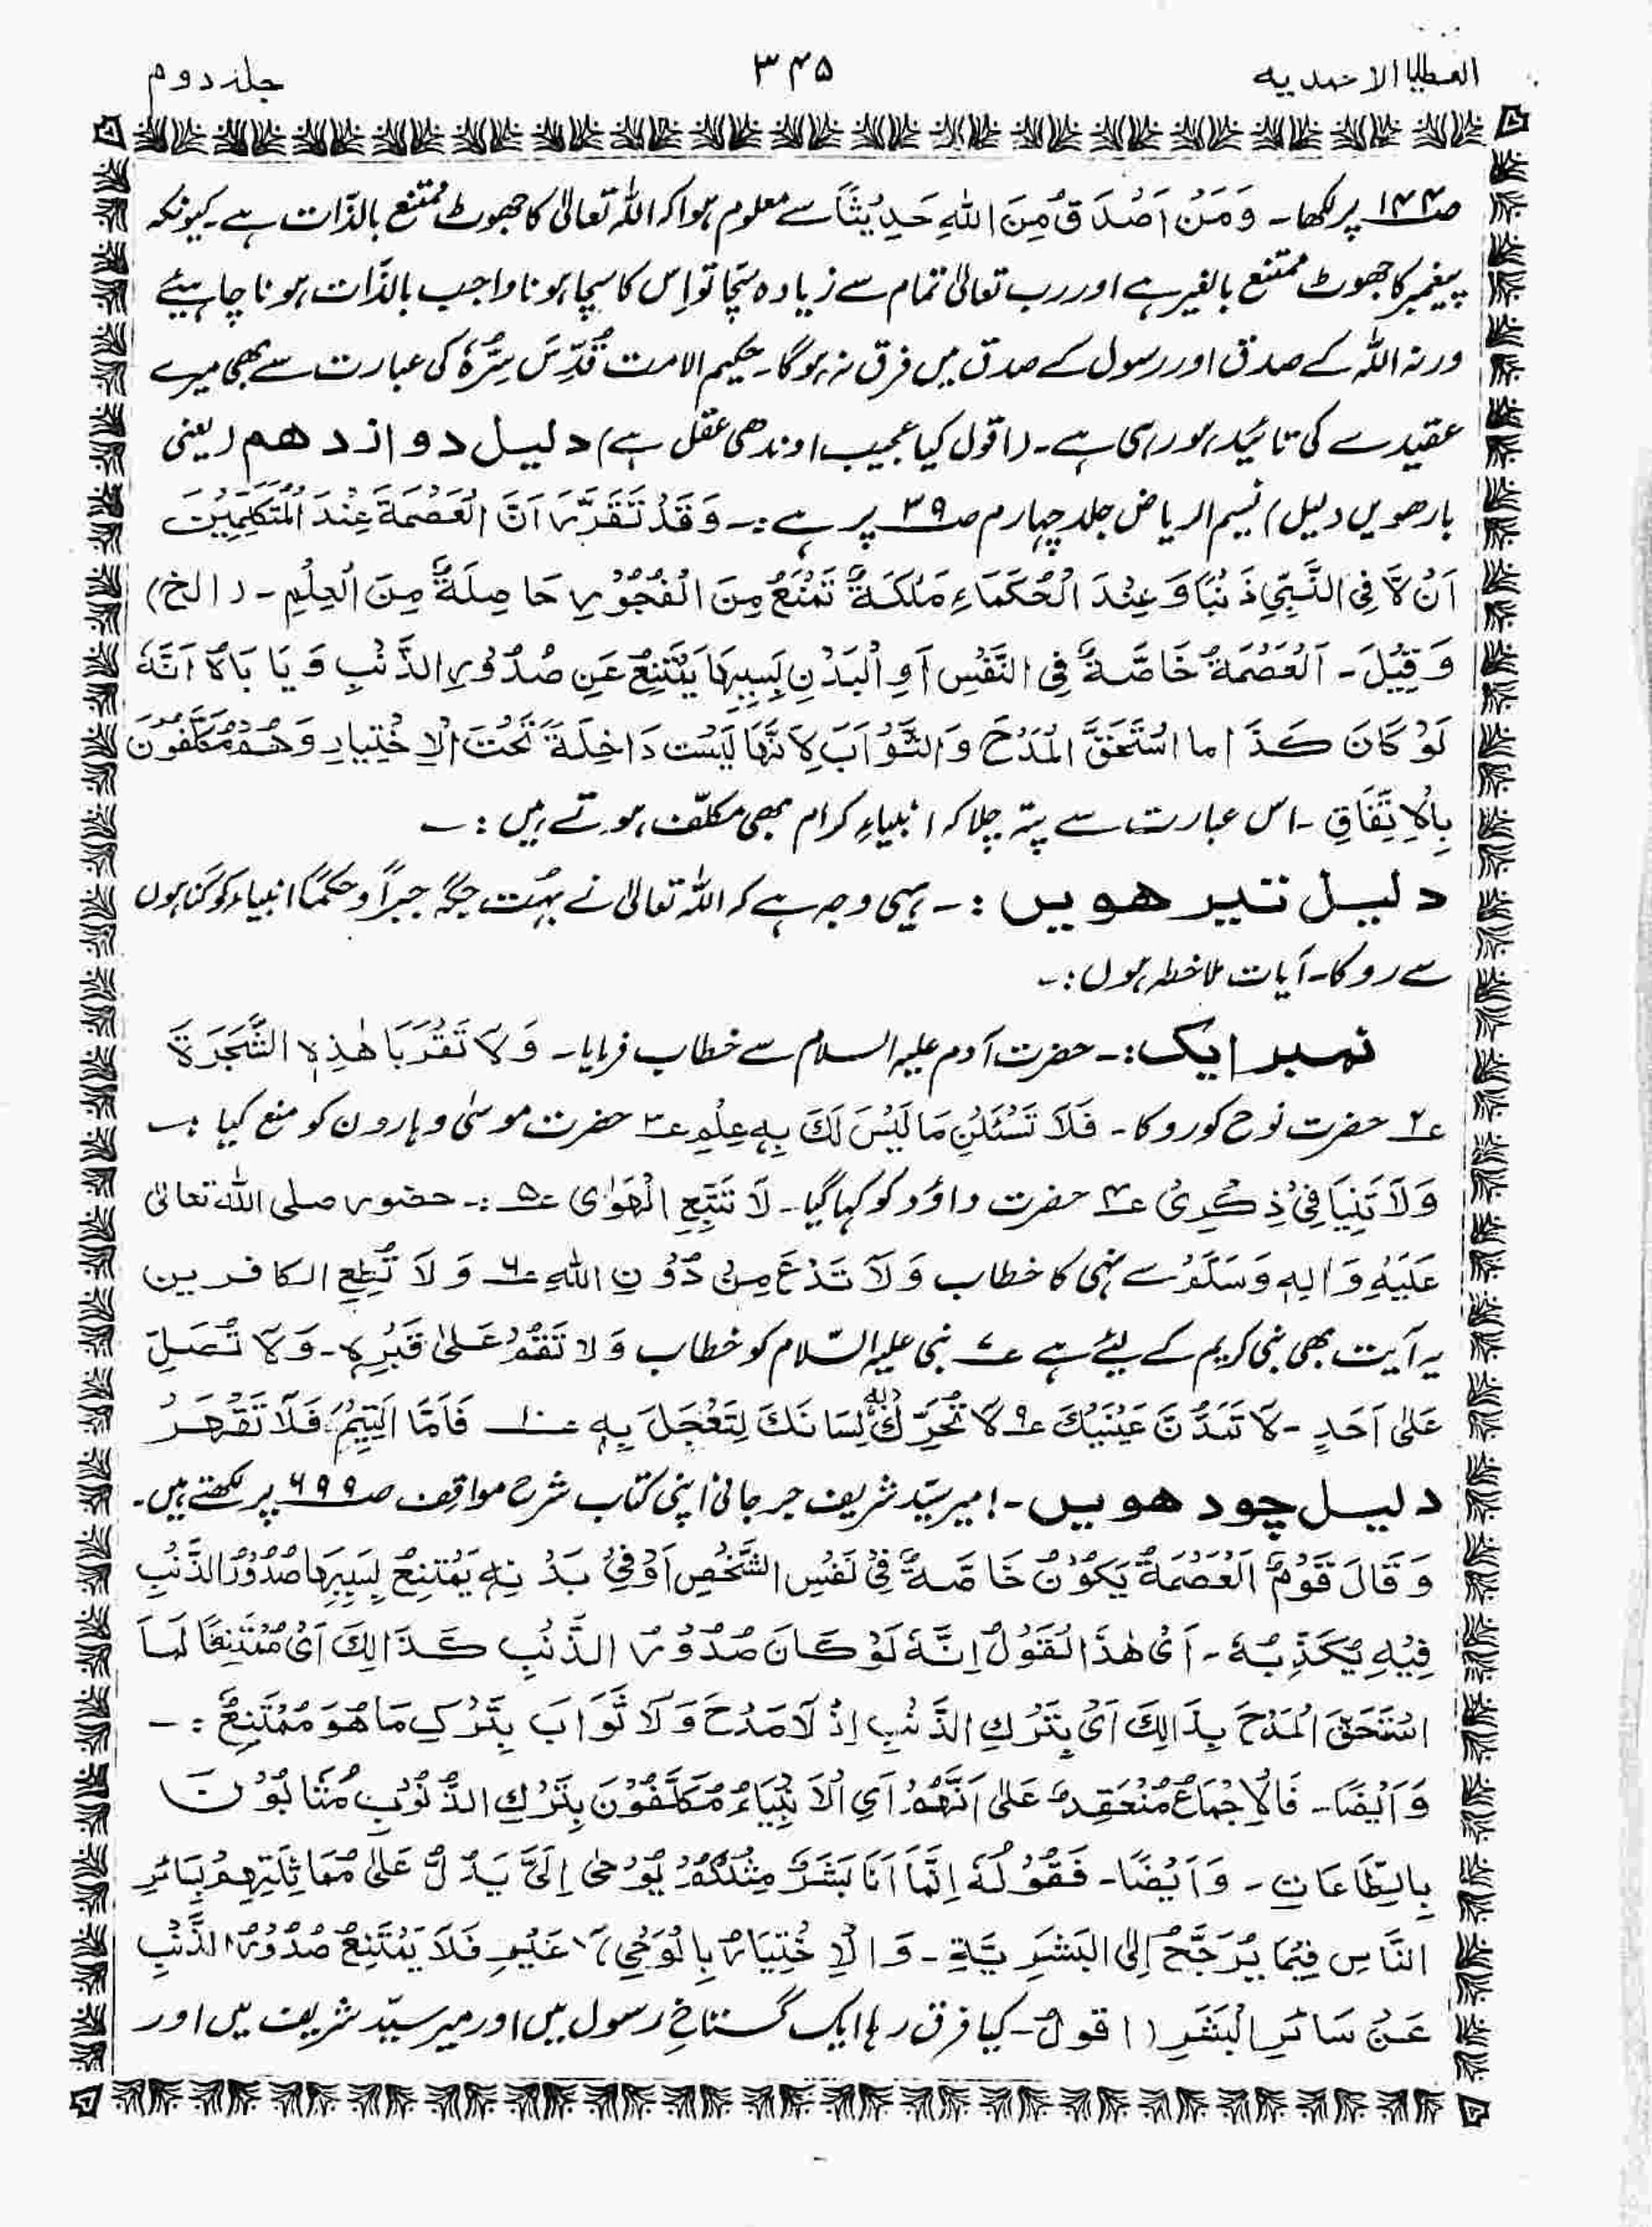 العطایا الاحمدیہ ۳۴۵ جلد دوم
صـ۱۴۴ پر لکھا۔ وَمَنْ اَصْدَقُ مِنَ اللهِ حَدِيْثًا سے معلوم ہوا کہ اللہ تعالیٰ کا جھوٹ ممتنع بالذّات ہے۔ کیونکہ
پیغمبر کا جھوٹ ممتنع بالغیر ہے اور رب تعالیٰ تمام سے زیادہ سچّا تو اِس کا سچا ہونا واجب بالذّات ہونا چاہیئے
ورنہ اللہ کے صدق اور رسول کے صدق میں فرق نہ ہوگا۔ حکیم الامت قُدِّسَ سِرُّہٗ کی عبارت سے بھی میرے
عقیدے کی تائید ہو رہی ہے۔ (اقول کیا عجیب اوندھی عقل ہے) دلیل دوازدھم (یعنی
بارھویں دلیل) نسیم الریاض جلد چہارم صـ۳۹ پر ہے :۔ وَقَدْ تَقَرَّرَ اَنَّ الْعَصْمَةَ عِنْدَ الْمُتَكَلِّمِيْنَ
اَنْ لَّا فِی النَّبِیِّ ذَنْبًا وَعِنْدَ الْحُكَمَاءِ مَلَكَةٌ تَمْنَعُ مِنَ الْفُجُوْرِ حَاصِلَةٌ مِنَ الْعِلْمِ ۔ (الخ)
وَقِيْلَ۔ اَلْعَصْمَةُ خَاصَّةٌ فِی النَّفْسِ اَوِ الْبَدْنِ بِسَبِبِهَا يَمْتَنِعُ عَنِ صُدُوْرِ الذَّنْبِ وَيَا بَاهُ اَنَّهٗ
لَوْ كَانَ كَذَا ما اسْتَحَقَّ الْمَدْحَ وَالثَّوْابَ لِاَنَّهَا لَيْسَت دَاخِلَةً تَحْتَ الْاِخْتِيَارِ وَهُمْ مُكَلَّفُوْنَ
بِالْاِتِّفَاقِ ۔ اس عبارت سے پتہ چلا کہ انبیاءِ کرام بھی مکلّف ہوتے ہیں :۔
دلیل تیرھویں :۔ یہی وجہ ہے کہ اللہ تعالیٰ نے بہُت جگہ جبراً وحکمًا انبیاء کو گناہوں
سے روکا۔ آیات ملاحظہ ہوں :۔
نمبر ایک :۔ حضرت آدم علیہ السلام سے خطاب فرمایا۔ وَلَا تَقْرَبَا هٰذِهِ الشَّجَرَةَ
۲ـ حضرت نوح کو روکا۔ فَلَا تَسْئَلْنِ مَا لَيْسَ لَكَ بِهٖ عِلْمٌ ۳ـ حضرت موسیٰ وہارون کو منع کیا :۔
وَلَا تَنِيَا فِیْ ذِكْرِیْ ۴ـ حضرت داؤد کو کہا گیا۔ لَا تَتَّبِعِ الْهَوٰى ۵ـ :۔ حضور صلی اللہ تعالیٰ
عَلَيْهِ وَاٰلِهٖ وَسَلَّمْ سے نہی کا خطاب وَلَا تَدْعَ مِنْ دُوْنِ اللهِ ۶ـ وَلَا تُطِعِ الکافرین
یہ آیت بھی نبی کریم کے لیئے ہے ۷ـ نبی علیہ السّلام کو خطاب وَلا تَقُمْ عَلٰى قَبْرِهٖ۔ وَلَا تُصَلِّ
عَلٰى اَحَدٍ ۔ لَا تَمُدَّنَّ عَيْنَيْكَ ۹ـ لَا تُحَرِّكْ بِهٖ لِسَانَكَ لِتَعْجَلَ بِهٖ ۱۰ـ فَاَمَّا الْيَتِيْمَ فَلَا تَقْهَرْ
دلیل چودھویں ۔ امیر سیّد شریف جرجانی اپنی کتاب شرح مواقف صـ۶۹۹ پر لکھتے ہیں۔
وَقَالَ قَوْمٌ اَلْعَصْمَةُ يَكُوْنُ خَاصَّةً فِیْ نَفْسِ الشَّخْصِ اَوْ فِیْ بَدْنِهٖ يَمْتَنِعُ بِسَبِبِهَا صُدُوْرُ الذَّنْبِ
فِيْهِ يُكَذِّبُهٗ ۔ اَیْ هٰذَا الْقَوْلُ اِنَّهٗ لَوْ كَانَ صُدُوْرُ الذَّنْبِ كَذَالِكَ اَیْ مُمْتَنِعًا لَمَا
اسْتَحَقَّ الْمَدْحَ بِذَالِكَ اَیْ بِتَرْكِ الذَّنْبِ اِذْ لَا مَدْحَ وَلَا ثَوَابَ بِتَرْكِ مَا هُوَ مُمْتَنِعٌ :۔
وَاَيْضًا۔ فَالْاِجْمَاعُ مُنْعَقِدٌ عَلٰى اَنَّهُمْ اَیِ الْاَنْبِيَاءُ مُكَلَّفُوْنَ بِتَرْكِ الذُّنُوْبِ مُثَابُوْنَ
بِالطَّاعَاتِ ۔ وَاَيْضًا۔ فَقَوْلُهٗ اِنَّمَا اَنَا بَشَرٌ مِثْلُكُمْ يُوْحٰى اِلَیَّ يَدُلُّ عَلٰى مُمَاثِلَتِهِمْ بِسَائِرِ
النَّاسِ فِيْمَا يُرَجَّحُ اِلَى البَشَرِيَّةِ ۔ وَالْاِخْتِيَارُ بِالْوَحْیِ لَا غَيْرِ فَلَا يَمْتَنِعُ صُدُوْرُ الذَّنْبِ
عَنْ سَائَرِ الْبَشَرِ (اقولُ۔ کیا فرق رہا ایک گستاخِ رسول میں اور میر سیّد شریف میں اور